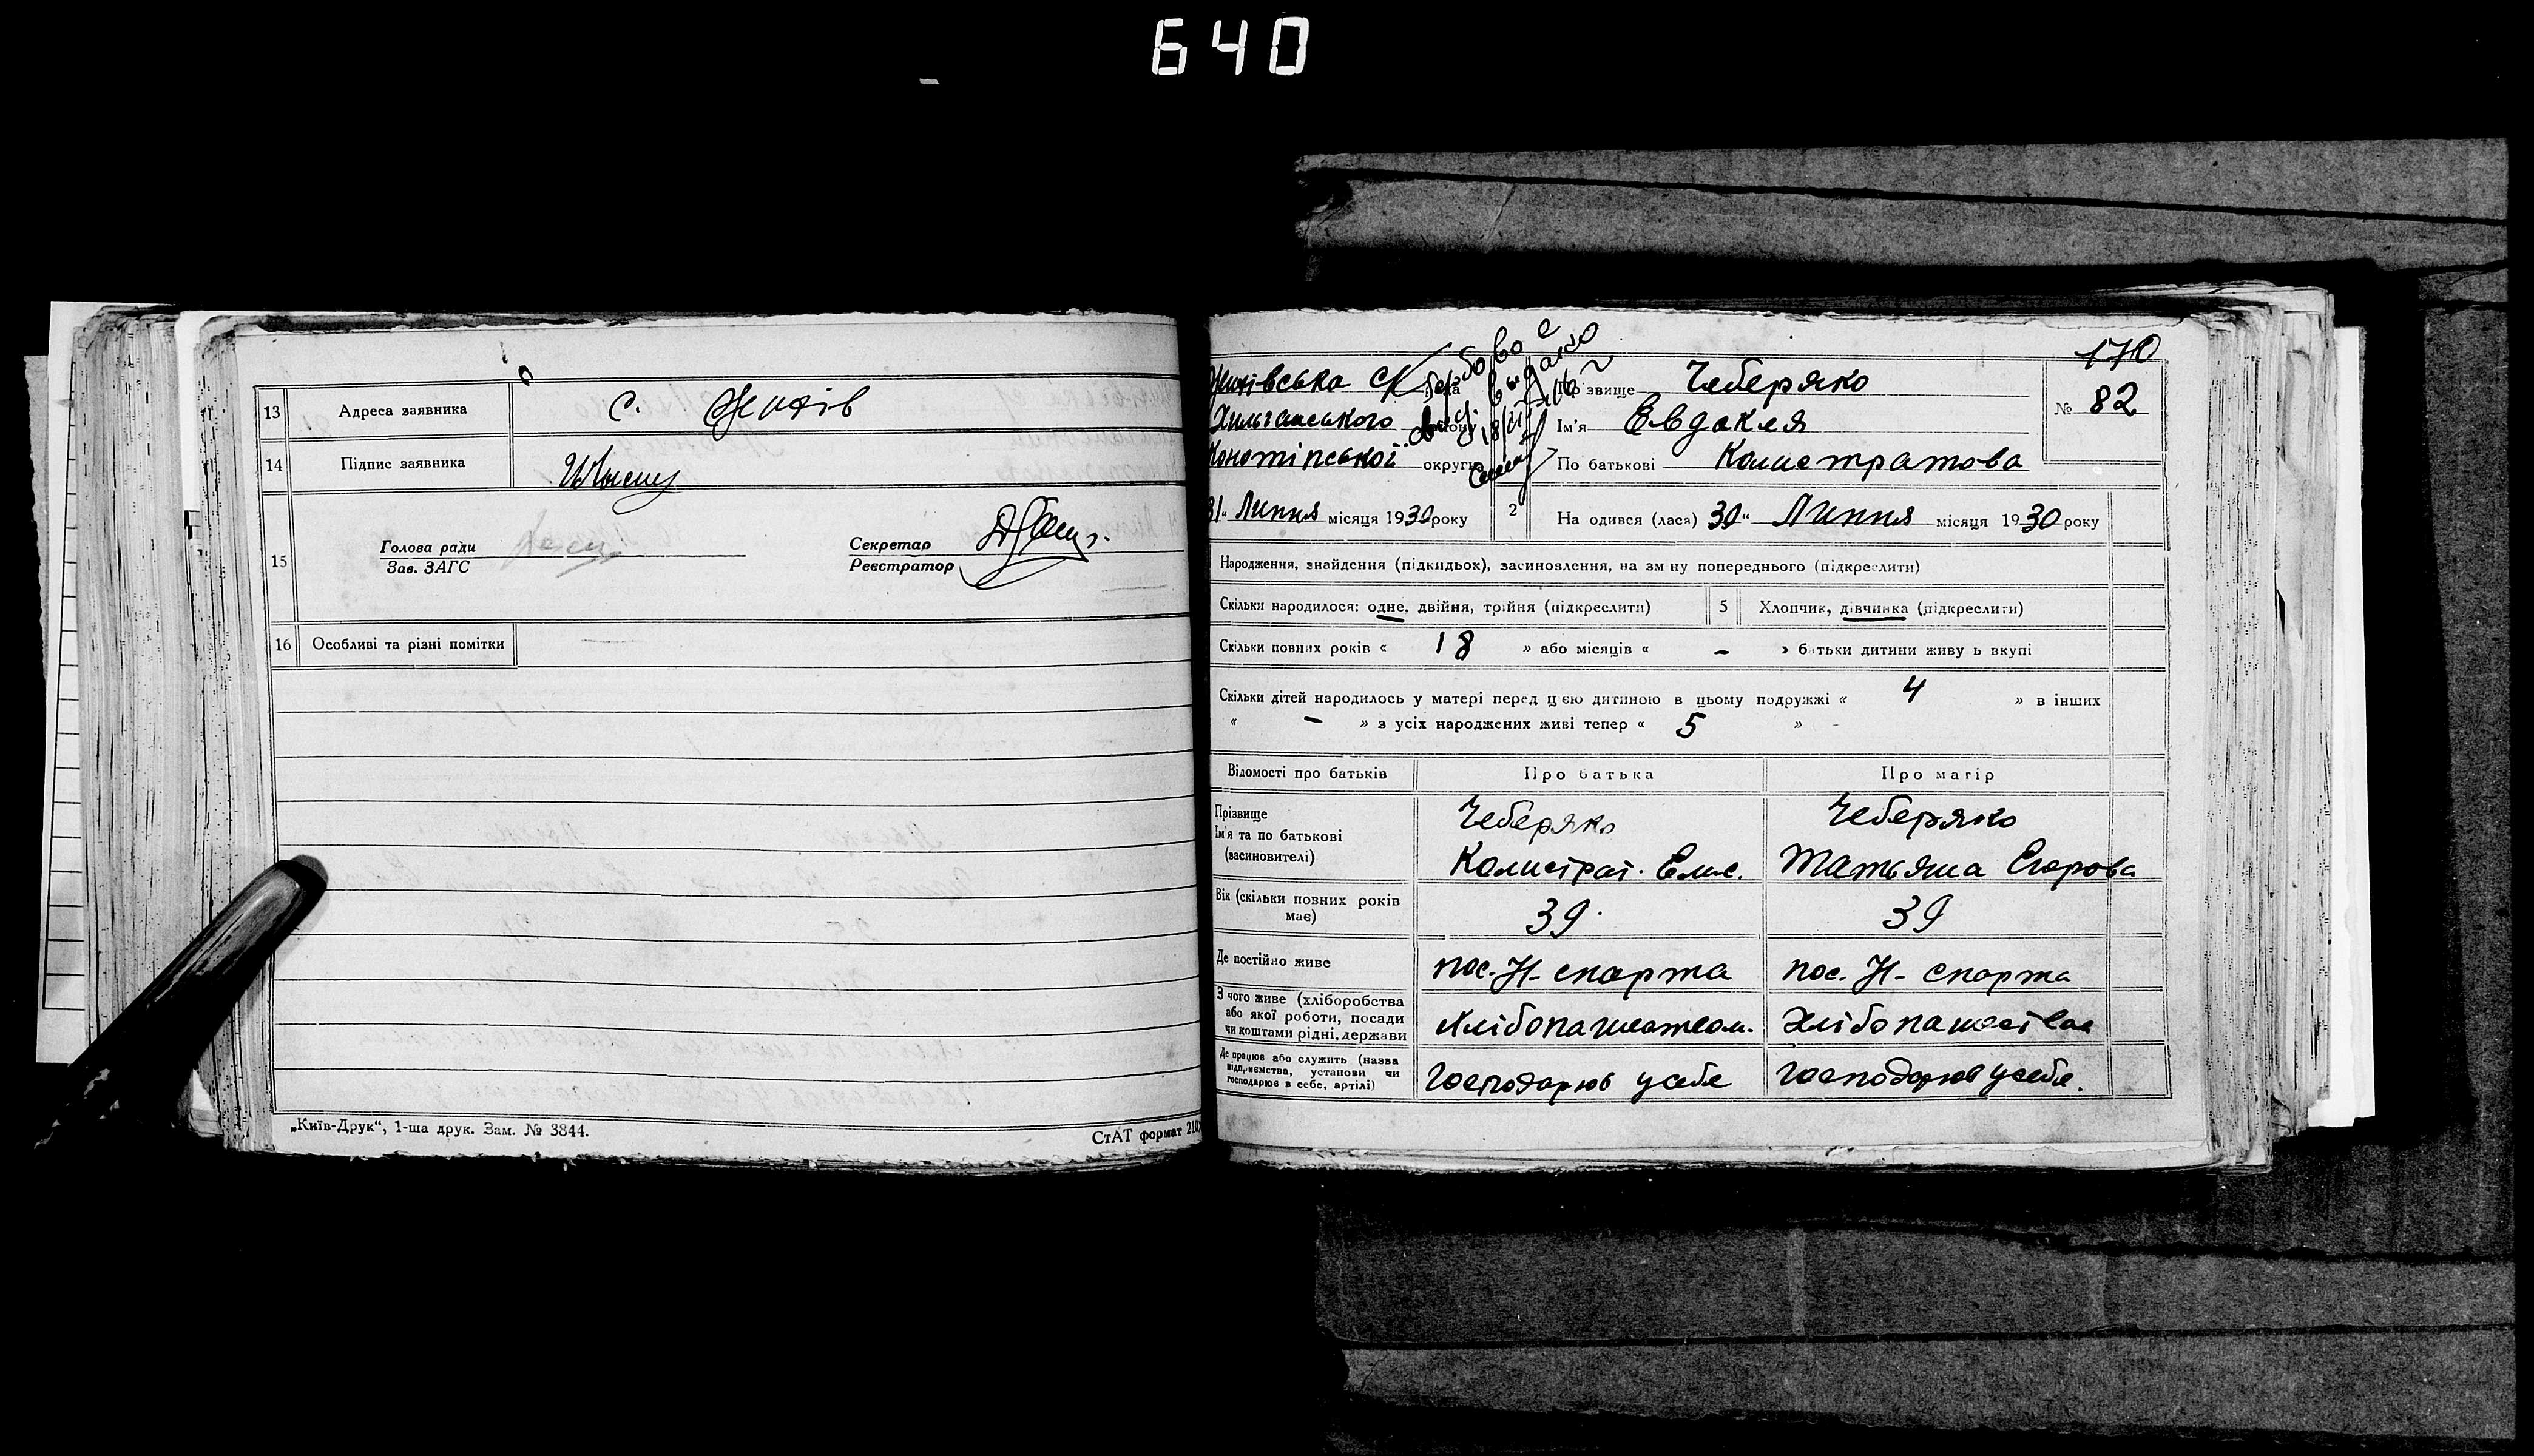 640
13 Адреса заявника с.
14 Підпис заявника
15 Голова ради Секретар
Зав. ЗАГС Реєстратор
16 Особливі та різні помітки —
„Київ-Друк“, 1-ша друк. Зам. № 3844.
СтАТ формат 210
170
Прізвище Чеберяко
№ 82
Ім'я Евдокия
Конотіпської округи По батькові Калистратова
31 Липня місяця 1930 року
2 На одився (лася) 30 " Липня місяця 1930 року
Народження, знайдення (підкидьок), засиновлення, на зм ну попереднього (підкреслити)
Скільки народилося: одне, двійня, трійня (підкреслити) 5 Хлопчик, дівчинка (підкреслити)
Скільки повних років « 18 » або місяців « – » батьки дитини живу ь вкупі
Скільки дітей народилось у матері перед цією дитиною в цьому подружжі « 4 » в інших
« – » з усіх народжених живі тепер « 5 »
Відомості про батьків Про батька Про матір
Прізвище Чеберяко Чеберяко
Ім'я та по батькові
(засиновителі) Калистрат. Татьяна Егорова
Вік (скільки повних років має) 39. 39
Де постійно живе пос. Н- спарта пос. Н- спарта
З чого живе (хліборобства
або якої роботи, посади
чи коштами рідні, держави
Де працює або служить (назва
підприємства, установи чи
господарює в себе, артілі) Господарює у себе Господарює у себе.